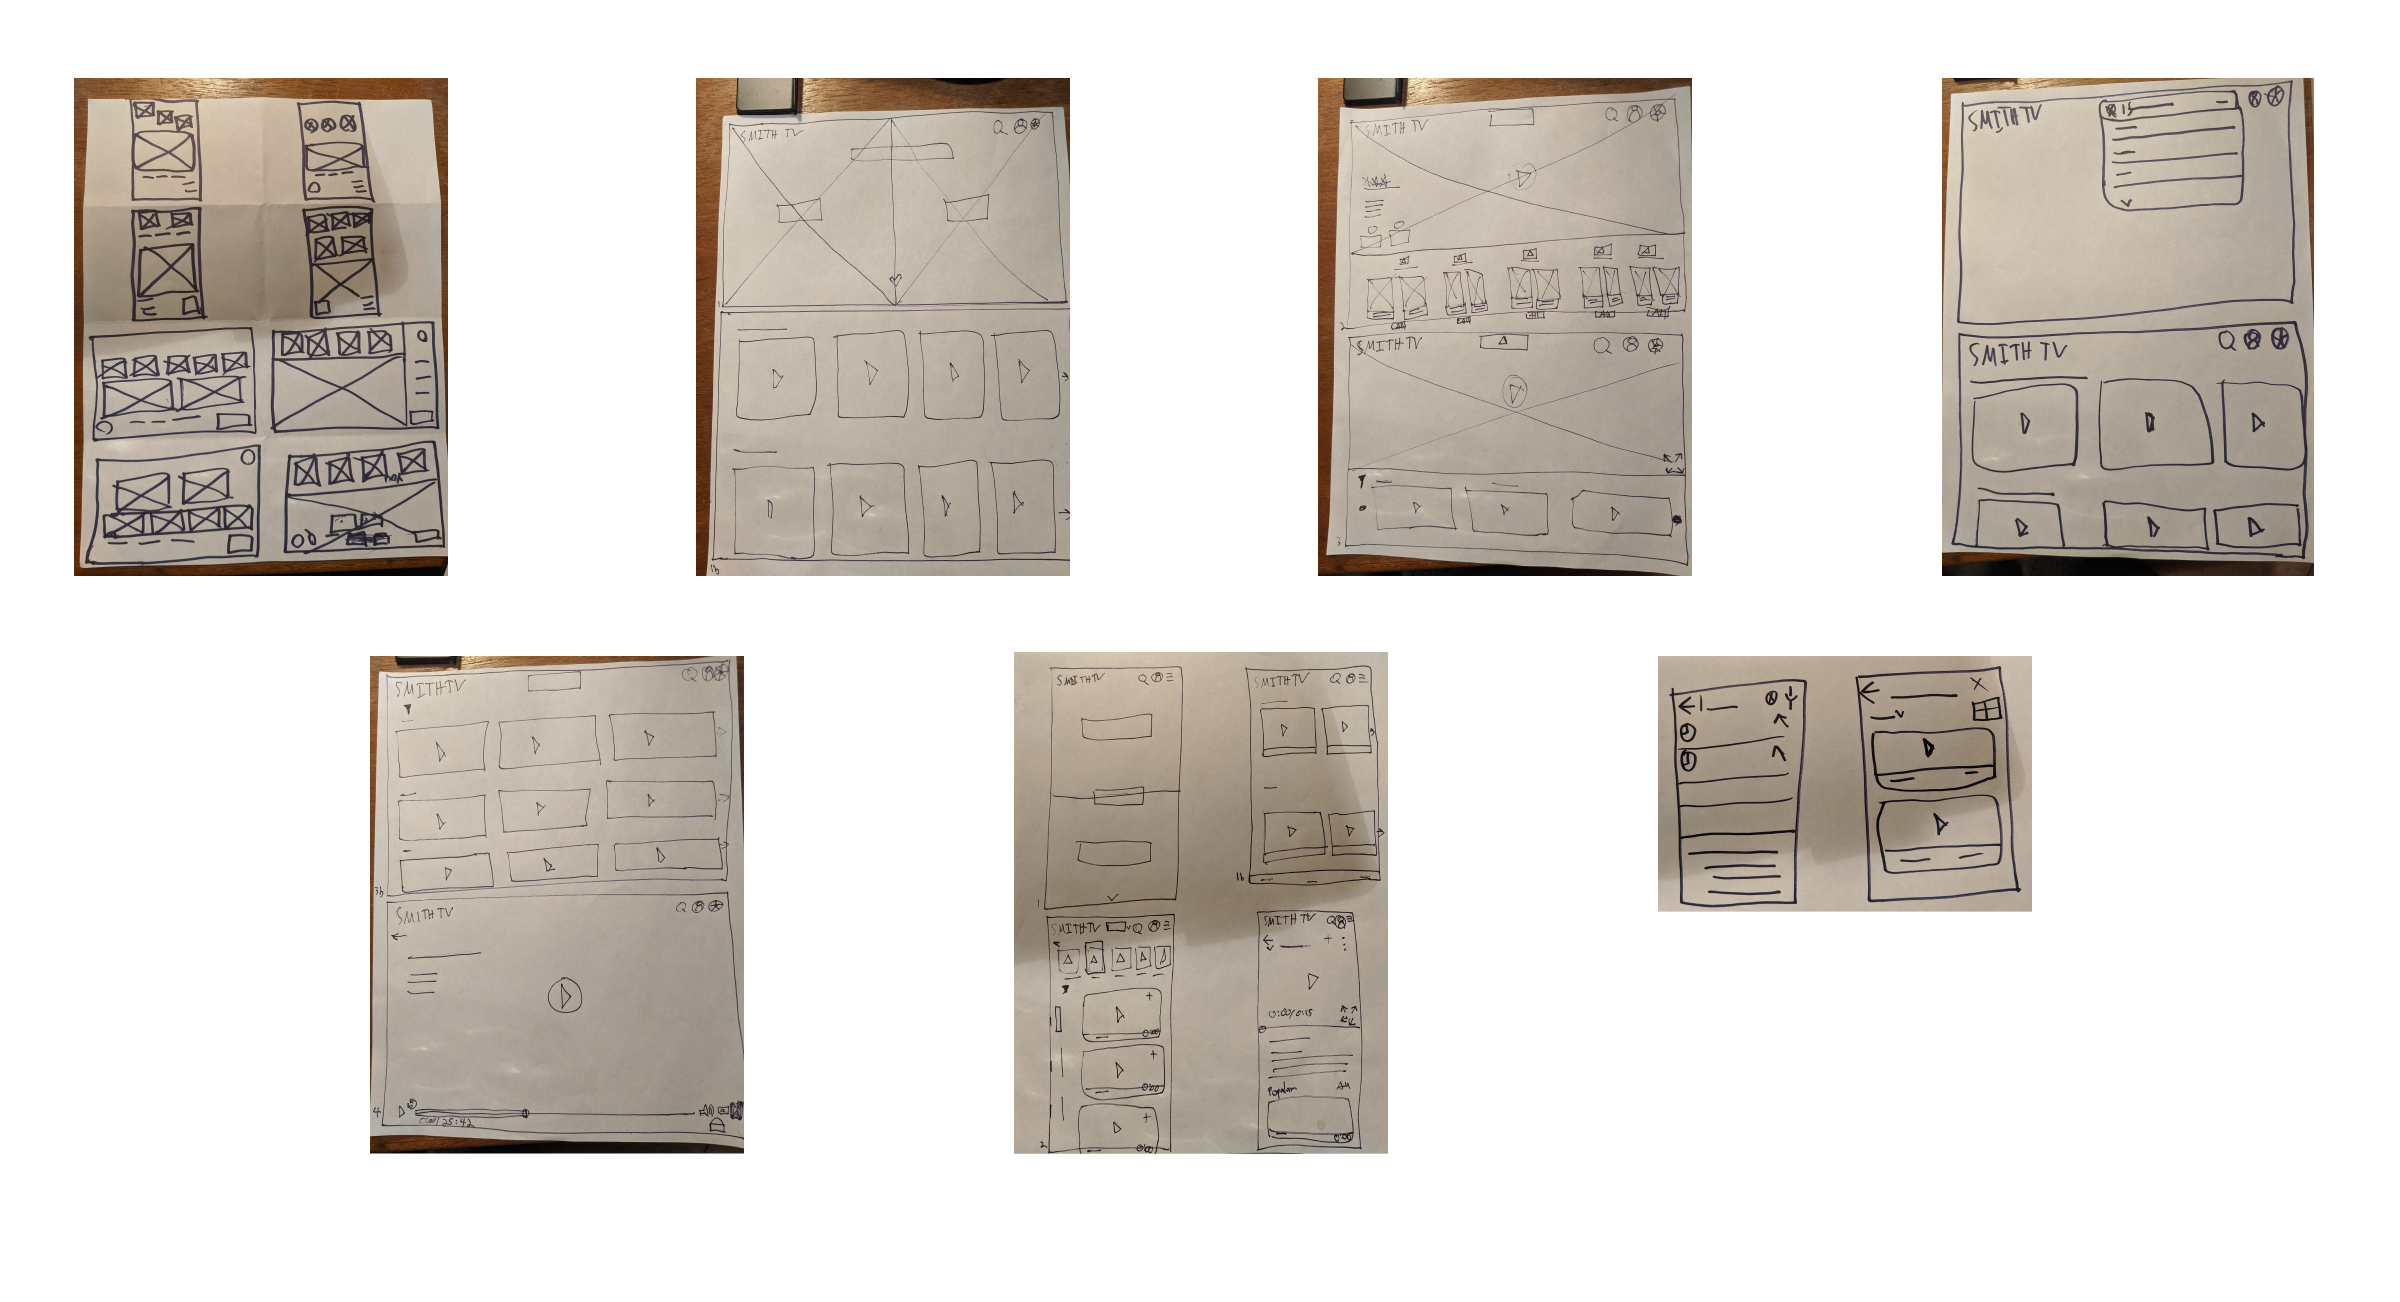 SMITH TV
1
1b
SMITH TV
2
SMITH TV
3
SMITH TV
SMITH TV
SMITH TV
3b
SMITH TV
4
0:00/25:42
SMITH TV
1
SMITH TV
1b
SMITH TV
0:00
0:00
0:00
2
SMITH TV
0:00/0:15
Popular
All
0:00